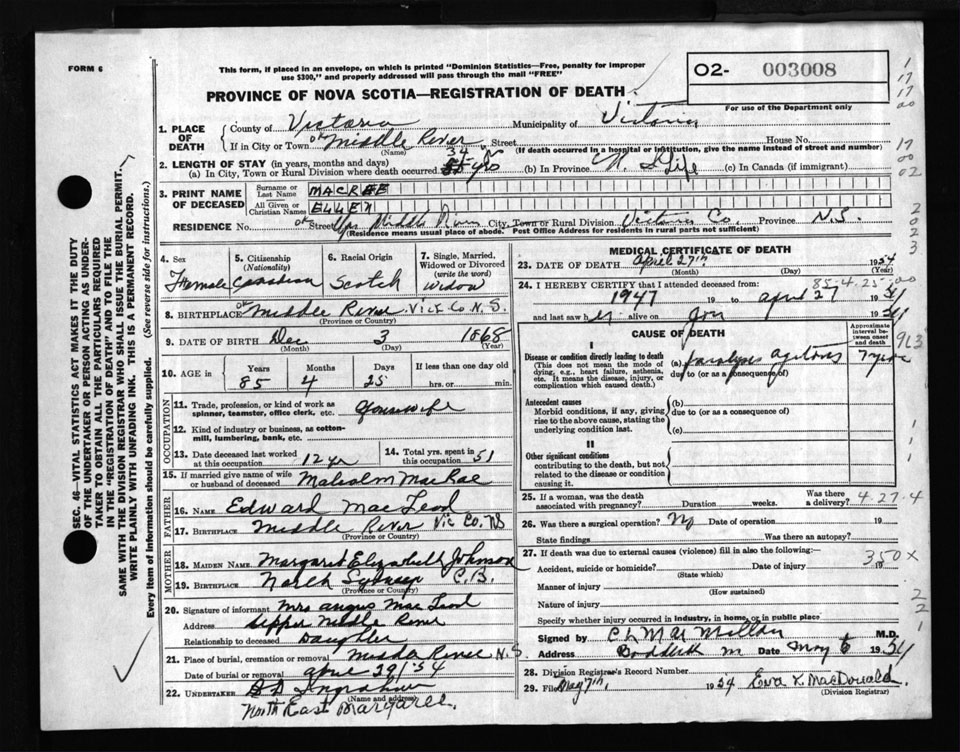 FORM 6
This form, if placed in an envelope, on which is printed "Dominion Statistics—Free, penalty for improper
use $300," and properly addressed will pass through the mail "FREE"
O2- 003008
PROVINCE OF NOVA SCOTIA—REGISTRATION OF DEATH
For use of the Department only
1. PLACE OF DEATH { County of Victoria Municipality of Victoria
If in City or Town Middle River Street House No.
(Name) (If death occurred in a hospital or institution, give the name instead of street and number)
2. LENGTH OF STAY (in years, months and days)
(a) In City, Town or Rural Division where death occurred 34 yrs (b) In Province Life (c) In Canada (if immigrant)
3. PRINT NAME OF DECEASED { Surname or Last Name MACRAE
All Given or Christian Names ELLEN
RESIDENCE No. Street Upr Middle River City, Town or Rural Division Victoria Co. Province N.S.
(Residence means usual place of abode. Post Office Address for residents in rural parts not sufficient)
4. Sex Female
5. Citizenship (Nationality) Canadian
6. Racial Origin Scotch
7. Single, Married, Widowed or Divorced (write the word) Widow
8. BIRTHPLACE Middle River Vict Co N.S.
(Province or Country)
9. DATE OF BIRTH Dec 3 1868
(Month) (Day) (Year)
10. AGE in { Years 85 Months 4 Days 25 If less than one day old hrs. or min.
OCCUPATION
11. Trade, profession, or kind of work as spinner, teamster, office clerk, etc. Housewife
12. Kind of industry or business, as cotton-mill, lumbering, bank, etc.
13. Date deceased last worked at this occupation 12 yr
14. Total yrs. spent in this occupation 51
15. If married give name of wife or husband of deceased Malcolm MacRae
FATHER
16. NAME Edward MacLeod
17. BIRTHPLACE Middle River Vic Co. NS
(Province or Country)
MOTHER
18. MAIDEN NAME Margaret Elizabeth Johnson
19. BIRTHPLACE North Sydney C.B.
(Province or Country)
20. Signature of informant Mrs Angus MacLeod
Address Upper Middle River
Relationship to deceased Daughter
21. Place of burial, cremation or removal Middle River N.S.
Date of burial or removal April 29/54
22. UNDERTAKER Ingraham
(Name and address)
North East Margaree.
MEDICAL CERTIFICATE OF DEATH
23. DATE OF DEATH April 27th 1954
(Month) (Day) (Year)
85-4-25
24. I HEREBY CERTIFY that I attended deceased from:
1947 19 to April 27 1954
and last saw her alive on Jan 1954
CAUSE OF DEATH
Approximate interval between onset and death
I
Disease or condition directly leading to death (a) Paralysis Agitans 7 years
(This does not mean the mode of dying, e.g., heart failure, asthenia, etc. It means the disease, injury, or complication which caused death.)
due to (or as a consequence of)
Antecedent causes (b)
Morbid conditions, if any, giving rise to the above cause, stating the underlying condition last.
due to (or as a consequence of)
(c)
II
Other significant conditions
contributing to the death, but not related to the disease or condition causing it.
25. If a woman, was the death associated with pregnancy? Duration weeks. Was there a delivery? 4.27.4
26. Was there surgical operation? No Date of operation 19
State findings Was there an autopsy?
27. If death was due to external causes (violence) fill in also the following:—
Accident, suicide or homicide? Date of injury 19
350X
(State which)
Manner of injury
(How sustained)
Nature of injury
Specify whether injury occurred in industry, in home, or in public place
Signed by C L MacMillan M.D.
Address Baddeck Date May 6 1954
28. Division Registrar's Record Number
29. Filed May 7th, 1954 Eva L. MacDonald
(Division Registrar)
SEC. 46—VITAL STATISTICS ACT MAKES IT THE DUTY
OF THE UNDERTAKER OR PERSON ACTING AS UNDERTAKER TO OBTAIN ALL THE PARTICULARS REQUIRED
IN THE "REGISTRATION OF DEATH" AND TO FILE THE
SAME WITH THE DIVISION REGISTRAR WHO SHALL ISSUE THE BURIAL PERMIT.
WRITE PLAINLY WITH UNFADING INK. THIS IS A PERMANENT RECORD.
Every item of information should be carefully supplied. (See reverse side for instructions.)